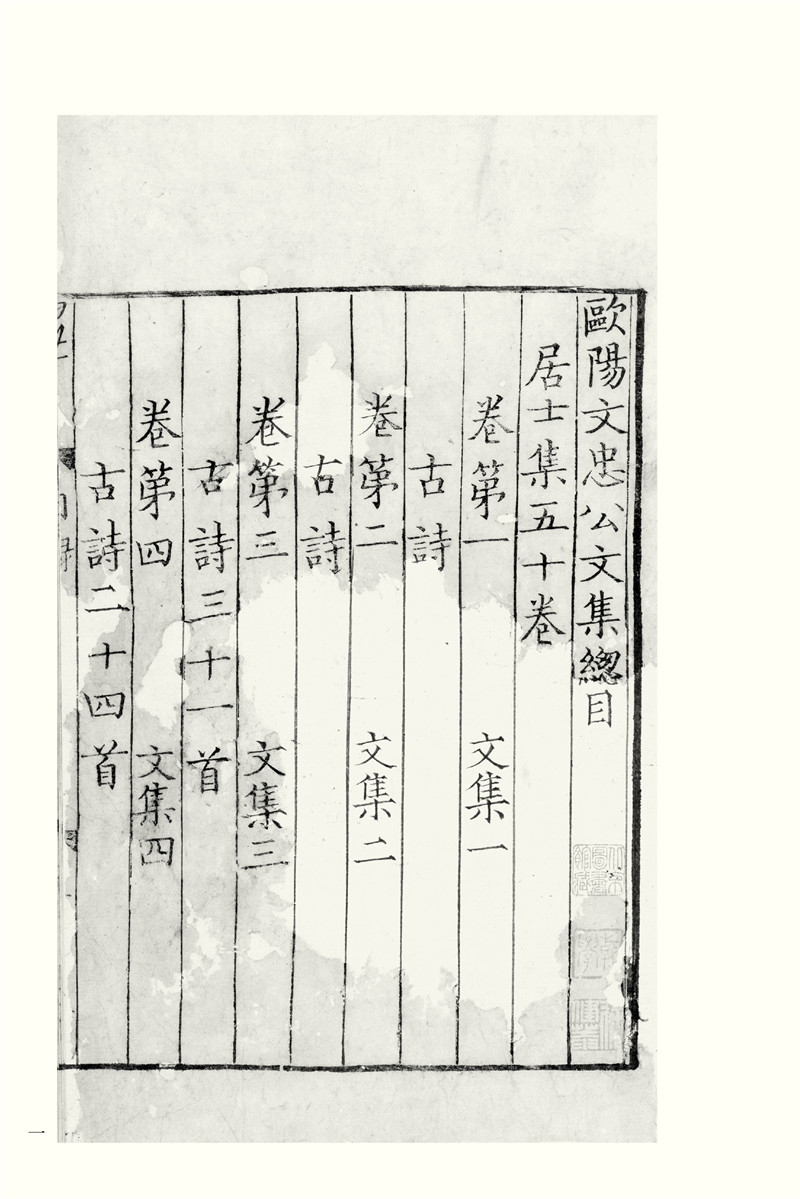 歐陽文忠公文集總目
居士集五十卷
卷第一 文集一
古詩
卷第二 文集二
古詩
卷第三 文集三
古詩三十一首
卷第四 文集四
古詩二十四首
一